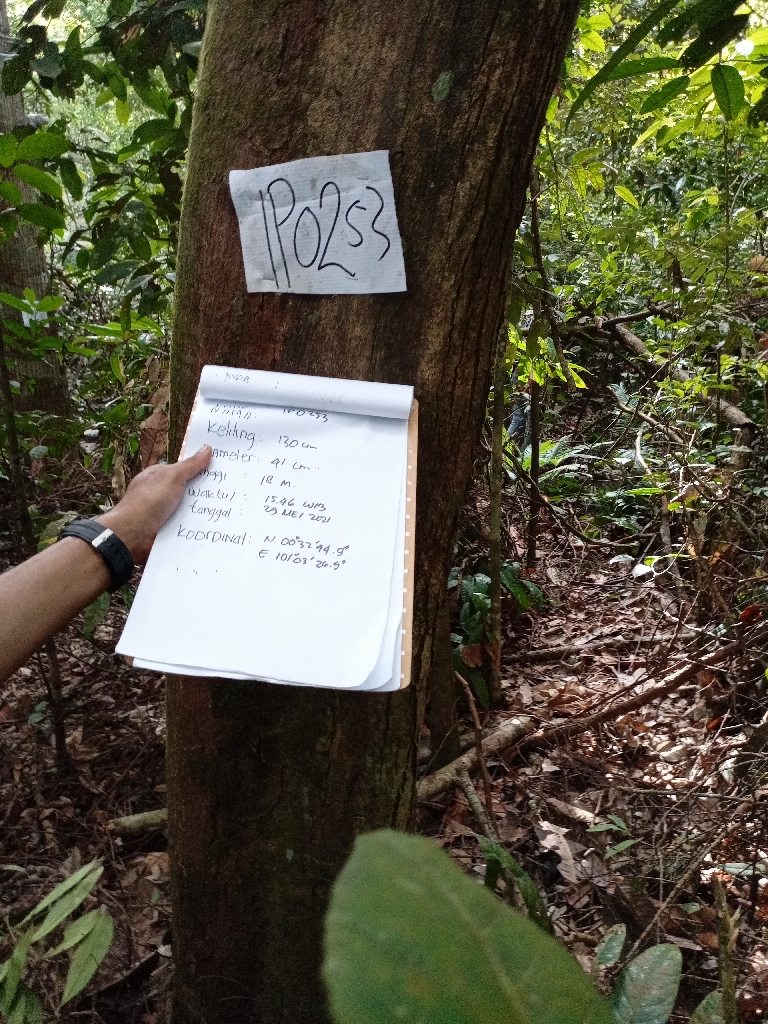 IP0253
IP0253
Keliling: 130 cm
ameter: 41 cm.
nggi : 18 m.
Waktu : 15.46 WIB
tanggal : 29 MEI 2021
Koordinat: N. 00°32'44.9"
E 101°03'26.9"